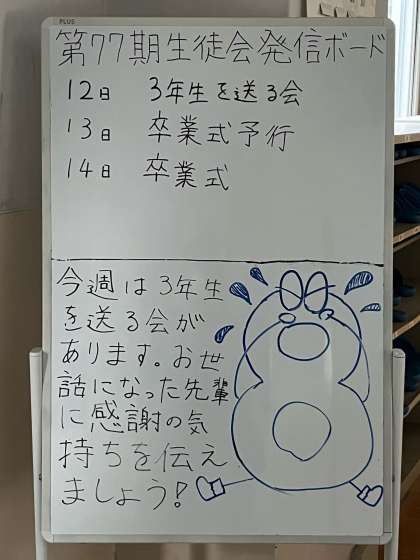 PLUS
第77期生徒会発信ボード
12日 3年生を送る会
13日 卒業式予行
14日 卒業式
今週は3年生
を送る会が
あります。お世
話になった先輩
に感謝の気
持ちを伝え
ましょう!